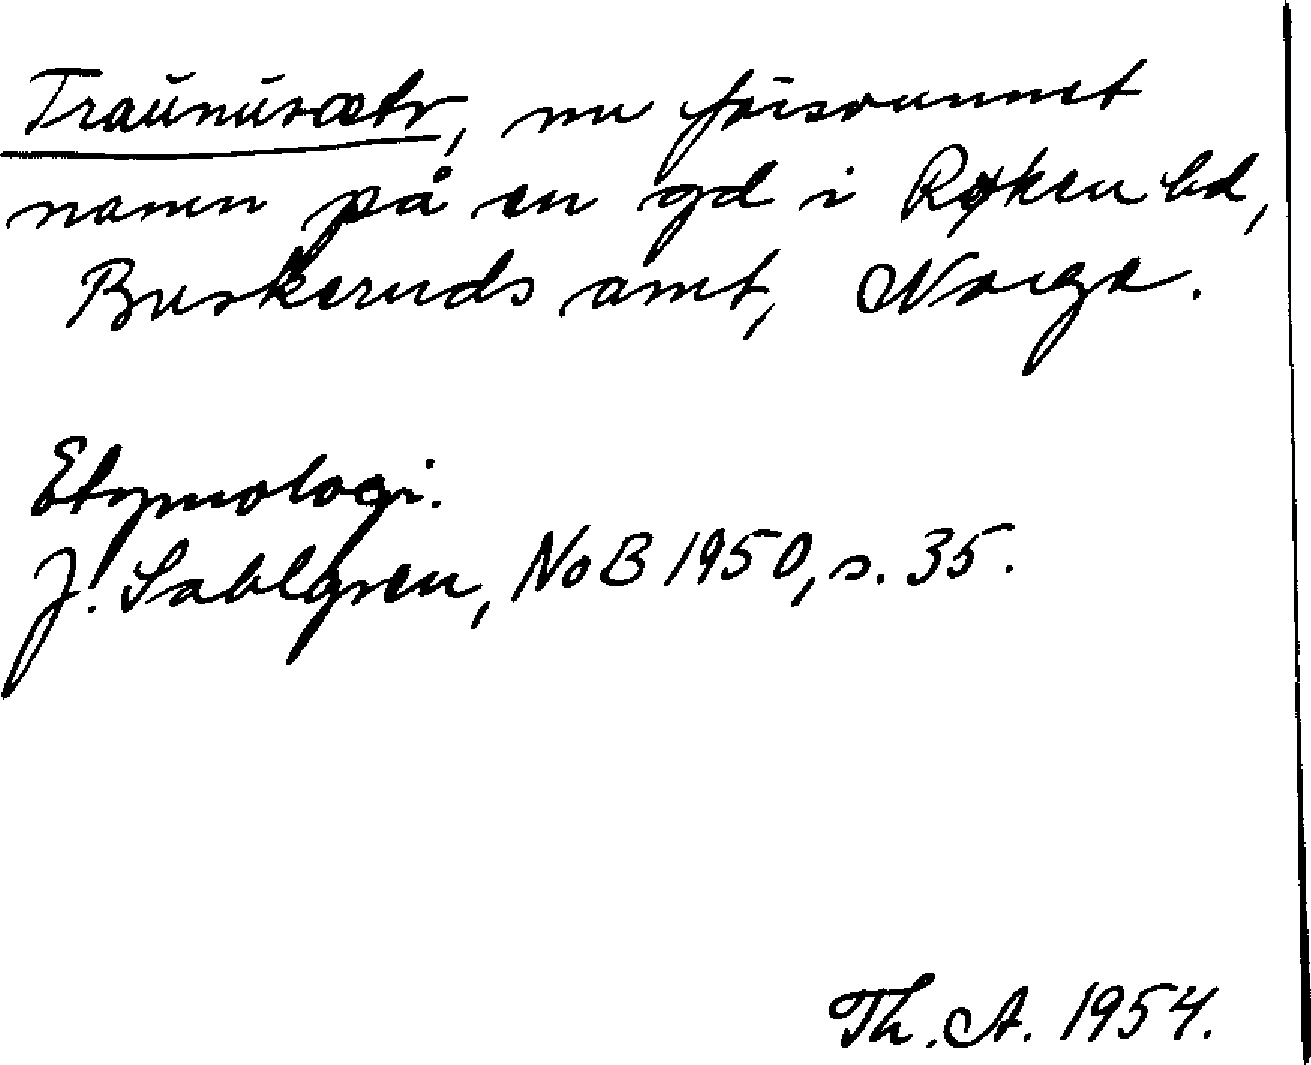 Traŭnŭsætr, nu försvunnet
namn på en gd i Røken hd,
Buskeruds amt, Norge.
Etymologi.
J. Sahlgren, NoB 1950, s. 35.
Th. A. 1954.